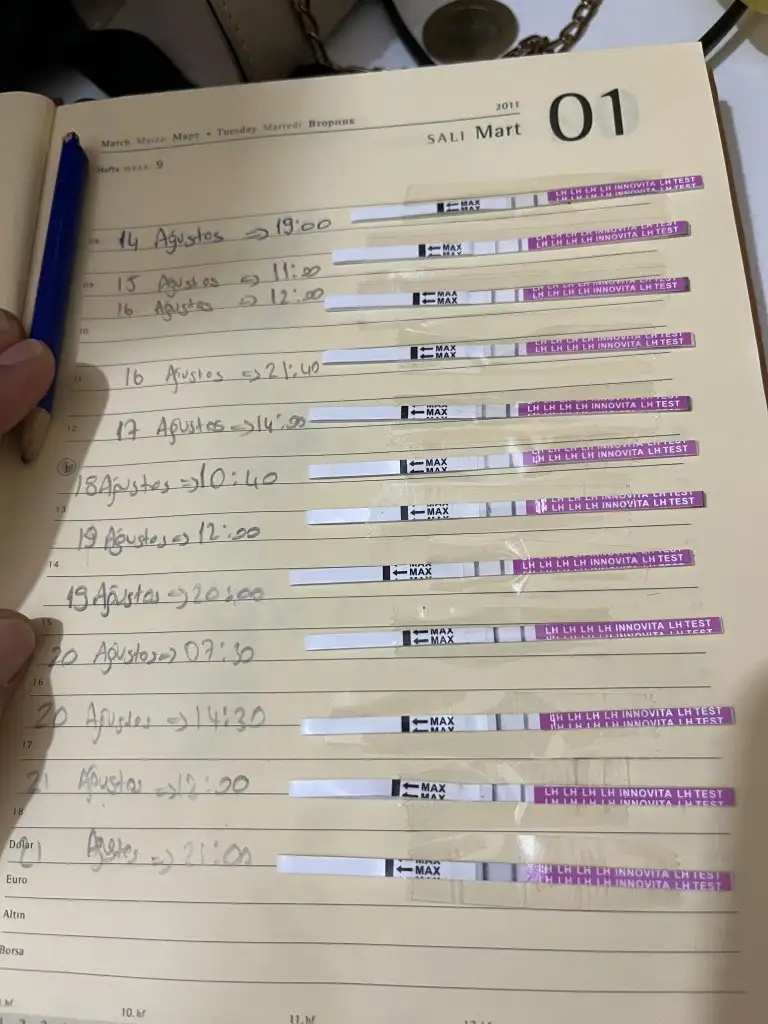 2011
March Marzo Март • Tuesday Martedì Вторник
SALI Mart 01
Hafta WEEK 9
← MAX LH LH LH LH INNOVITA LH TEST
14 Ağustos => 19:00
← MAX LH LH LH LH INNOVITA LH TEST
09 15 Ağustos => 11:00
16 Ağustos => 12:00 ← MAX LH LH LH LH INNOVITA LH TEST
10
← MAX LH LH LH LH INNOVITA LH TEST
11 16 Ağustos => 21:40
12 17 Ağustos => 14:00 ← MAX LH LH LH LH INNOVITA LH TEST
18 Ağustos => 10:40 ← MAX LH LH LH LH INNOVITA LH TEST
13
19 Ağustos => 12:00 ← MAX LH LH LH LH INNOVITA LH TEST
14
19 Ağustos => 20:00 ← MAX LH LH LH LH INNOVITA LH TEST
15
20 Ağustos => 07:30 ← MAX LH LH LH LH INNOVITA LH TEST
16
20 Ağustos => 14:30 ← MAX LH LH LH LH INNOVITA LH TEST
17
21 Ağustos => 12:00 ← MAX LH LH LH LH INNOVITA LH TEST
18
Dolar 21 Ağustos => 21:00 ← MAX LH LH LH LH INNOVITA LH TEST
Euro
Altın
Borsa
10.hf 11.hf